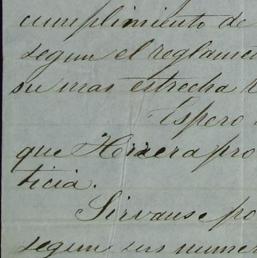 cumplimiento de
segun el reglame
su mas estrecha r
Espero
que Herrera pro
ticia.
Sirvanse po
segun sus numer